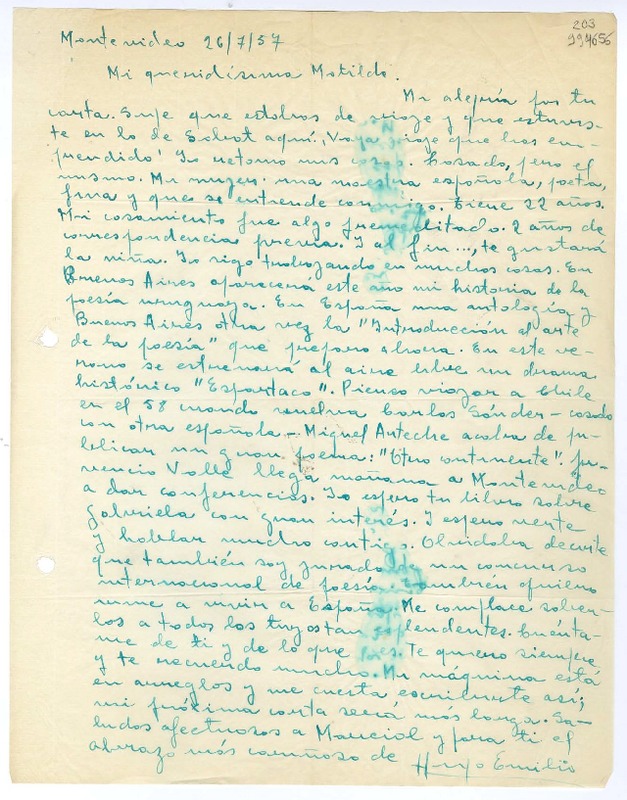 203
994656
Montevideo 26/7/57
Mi queridísima Matilde.
Mi alegría por tu
carta. Supe que estabas de viaje y que estuvis-
te en lo de Sabat aquí. ¡Vaya viaje que has em-
prendido! Yo retomo mis cosas. Casado, pero el
mismo. Mi mujer: una maestra española, poeta,
fina y que se entiende conmigo. Tiene 22 años.
Mi casamiento fue algo premeditado. 2 años de
correspondencia previa. Y al fin..., te gustará
la niña. Yo sigo trabajando en muchas cosas. En
Buenos Aires aparecerá este año mi historia de la
poesía uruguaya. En España una antología y
Buenos Aires otra vez la "Introducción al arte
de la poesía" que preparo ahora. En este ve-
rano se estrenará al aire libre un drama
histórico "Espartaco". Pienso viajar a Chile
en el 58 cuando vuelva Carlos Sánder - casado
con otra española - Miguel Arteche acaba de pu-
blicar un gran poema: "Otro continente". Ju-
vencio Valle llega mañana a Montevideo
a dar conferencias. Yo espero tu libro sobre
Gabriela con gran interés. Y espero verte
y hablar mucho contigo. Olvidaba decirte
que también soy jurado de un concurso
internacional de poesía. También quiero
irme a vivir a España. Me complace saber-
los a todos los tuyos tan esplendentes. Cuénta-
me de ti y de lo que haces. Te quiero siempre
y te recuerdo mucho. Mi máquina está
en arreglos y me cuesta escribirte así;
mi próxima carta será más larga. Sa-
ludos afectuosos a Marcial y para ti el
abrazo más cariñoso de Hugo Emilio